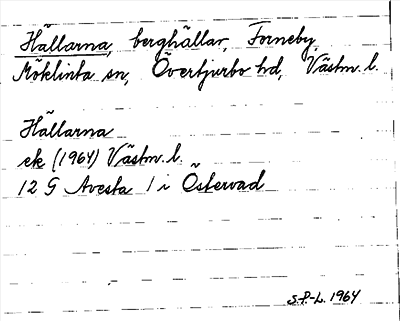 Hällarna, berghällar, Forneby,
Möklinta sn, Övertjurbo hd, Västm. l.
Hällarna
ek (1964) Västm. l.
12 G Avesta 1 i Östervad
S.P-L. 1964